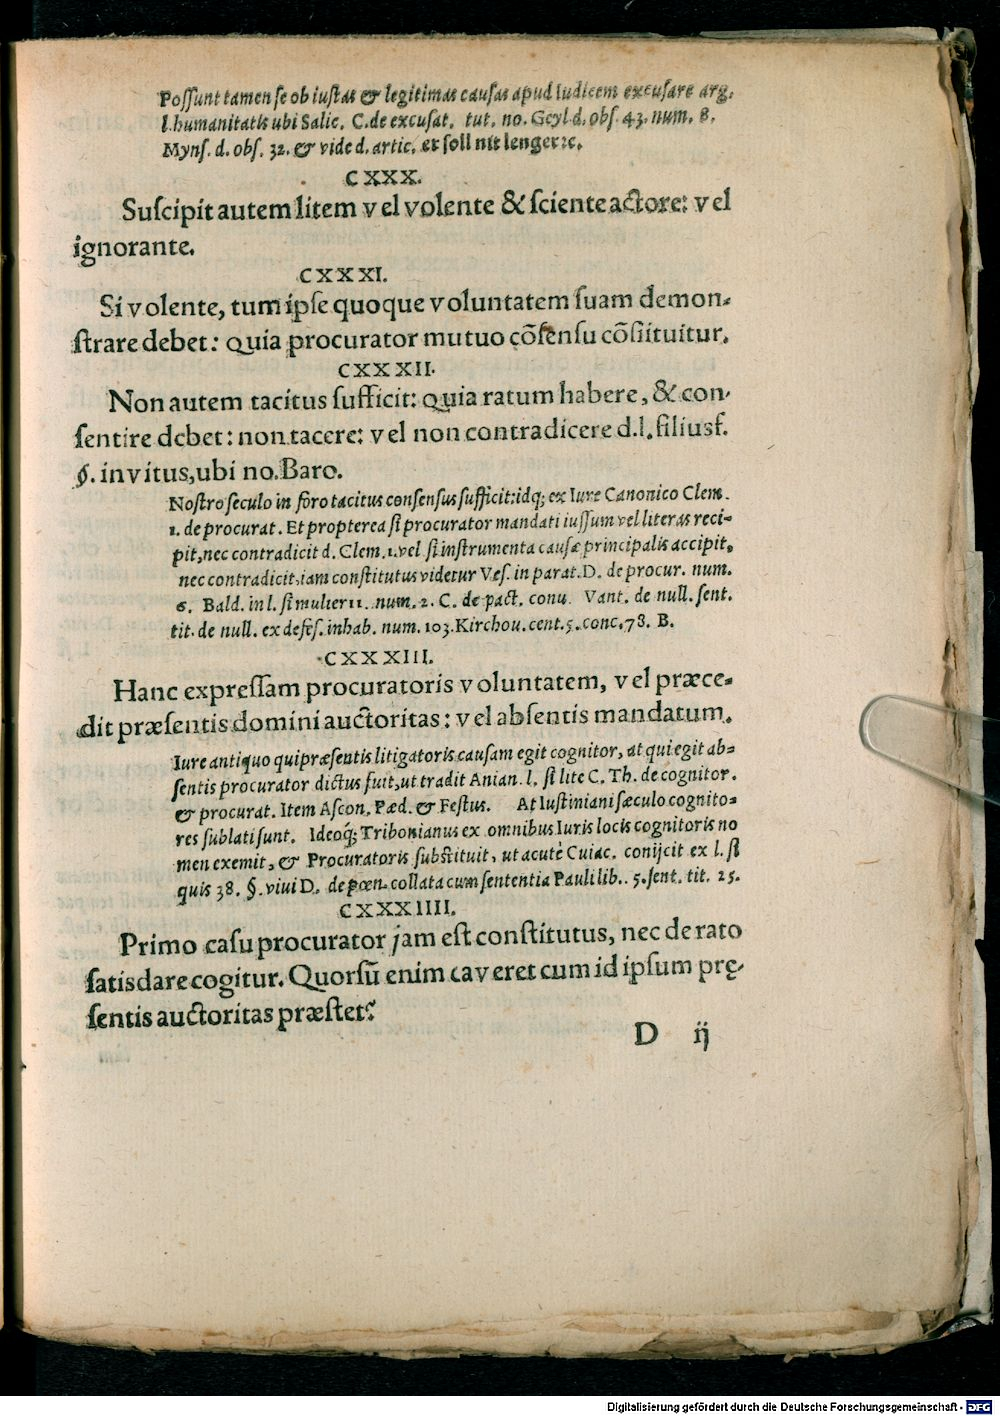 Possunt tamen se ob iustas & legitimas causas apud Iudicem excusare arg.
l. humanitatis ubi Salic. C. de excusat. tut. no. Geyl d. obs. 43. num. 8.
Myns. d. obs. 32. & vide d. artic. er soll nit lenger ꝛc.
CXXX.
Suscipit autem litem vel volente & sciente actore: vel
ignorante.
CXXXI.
Si volente, tum ipse quoque voluntatem suam demon-
strare debet: quia procurator mutuo cõsensu cõstituitur.
CXXXII.
Non autem tacitus sufficit: quia ratum habere, & con-
sentire debet: non tacere: vel non contradicere d. l. filiusf.
§. invitus, ubi no. Baro.
Nostro seculo in foro tacitus consensus sufficit: idq; ex Iure Canonico Clem.
1. de procurat. Et propterea si procurator mandati iussum vel literas reci-
pit, nec contradicit d. Clem. 1. vel si instrumenta causæ principalis accipit,
nec contradicit, iam constitutus videtur Ves. in parat. D. de procur. num.
6. Bald. in l. si mulier 11. num. 2. C. de pact. conu. Vant. de null. sent.
tit. de null. ex defes. inhab. num. 103. Kirchou. cent. 5. conc. 78. B.
CXXXIII.
Hanc expressam procuratoris voluntatem, vel præce-
dit præsentis domini auctoritas: vel absentis mandatum.
Iure antiquo qui præsentis litigatoris causam egit cognitor, at qui egit ab-
sentis procurator dictus fuit, ut tradit Anian. l. si lite C. Th. de cognitor.
& procurat. Item Ascon. Pæd. & Festus. At Iustiniani sæculo cognito-
res sublati sunt. Ideoq; Tribonianus ex omnibus Iuris locis cognitoris no
men exemit, & Procuratoris substituit, ut acutè Cuiac. conijcit ex l. si
quis 38. §. viui D. de pœn. collata cum sententia Pauli lib. 5. sent. tit. 25.
CXXXIIII.
Primo casu procurator jam est constitutus, nec de rato
satisdare cogitur. Quorsũ enim caveret cum id ipsum prę-
sentis auctoritas præstet?
D ij
Digitalisierung gefördert durch die Deutsche Forschungsgemeinschaft - DFG